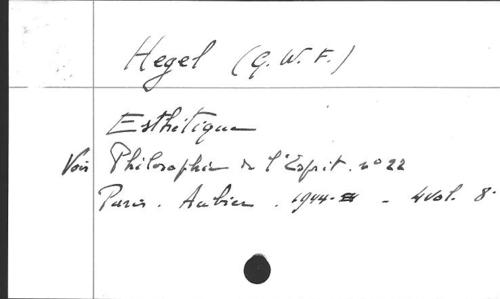 Hegel (G. W. F.)
Esthétique
Voir Philosophie de l'Esprit. n° 22
Paris. Aubier. 1944 - 4 vol. 8°